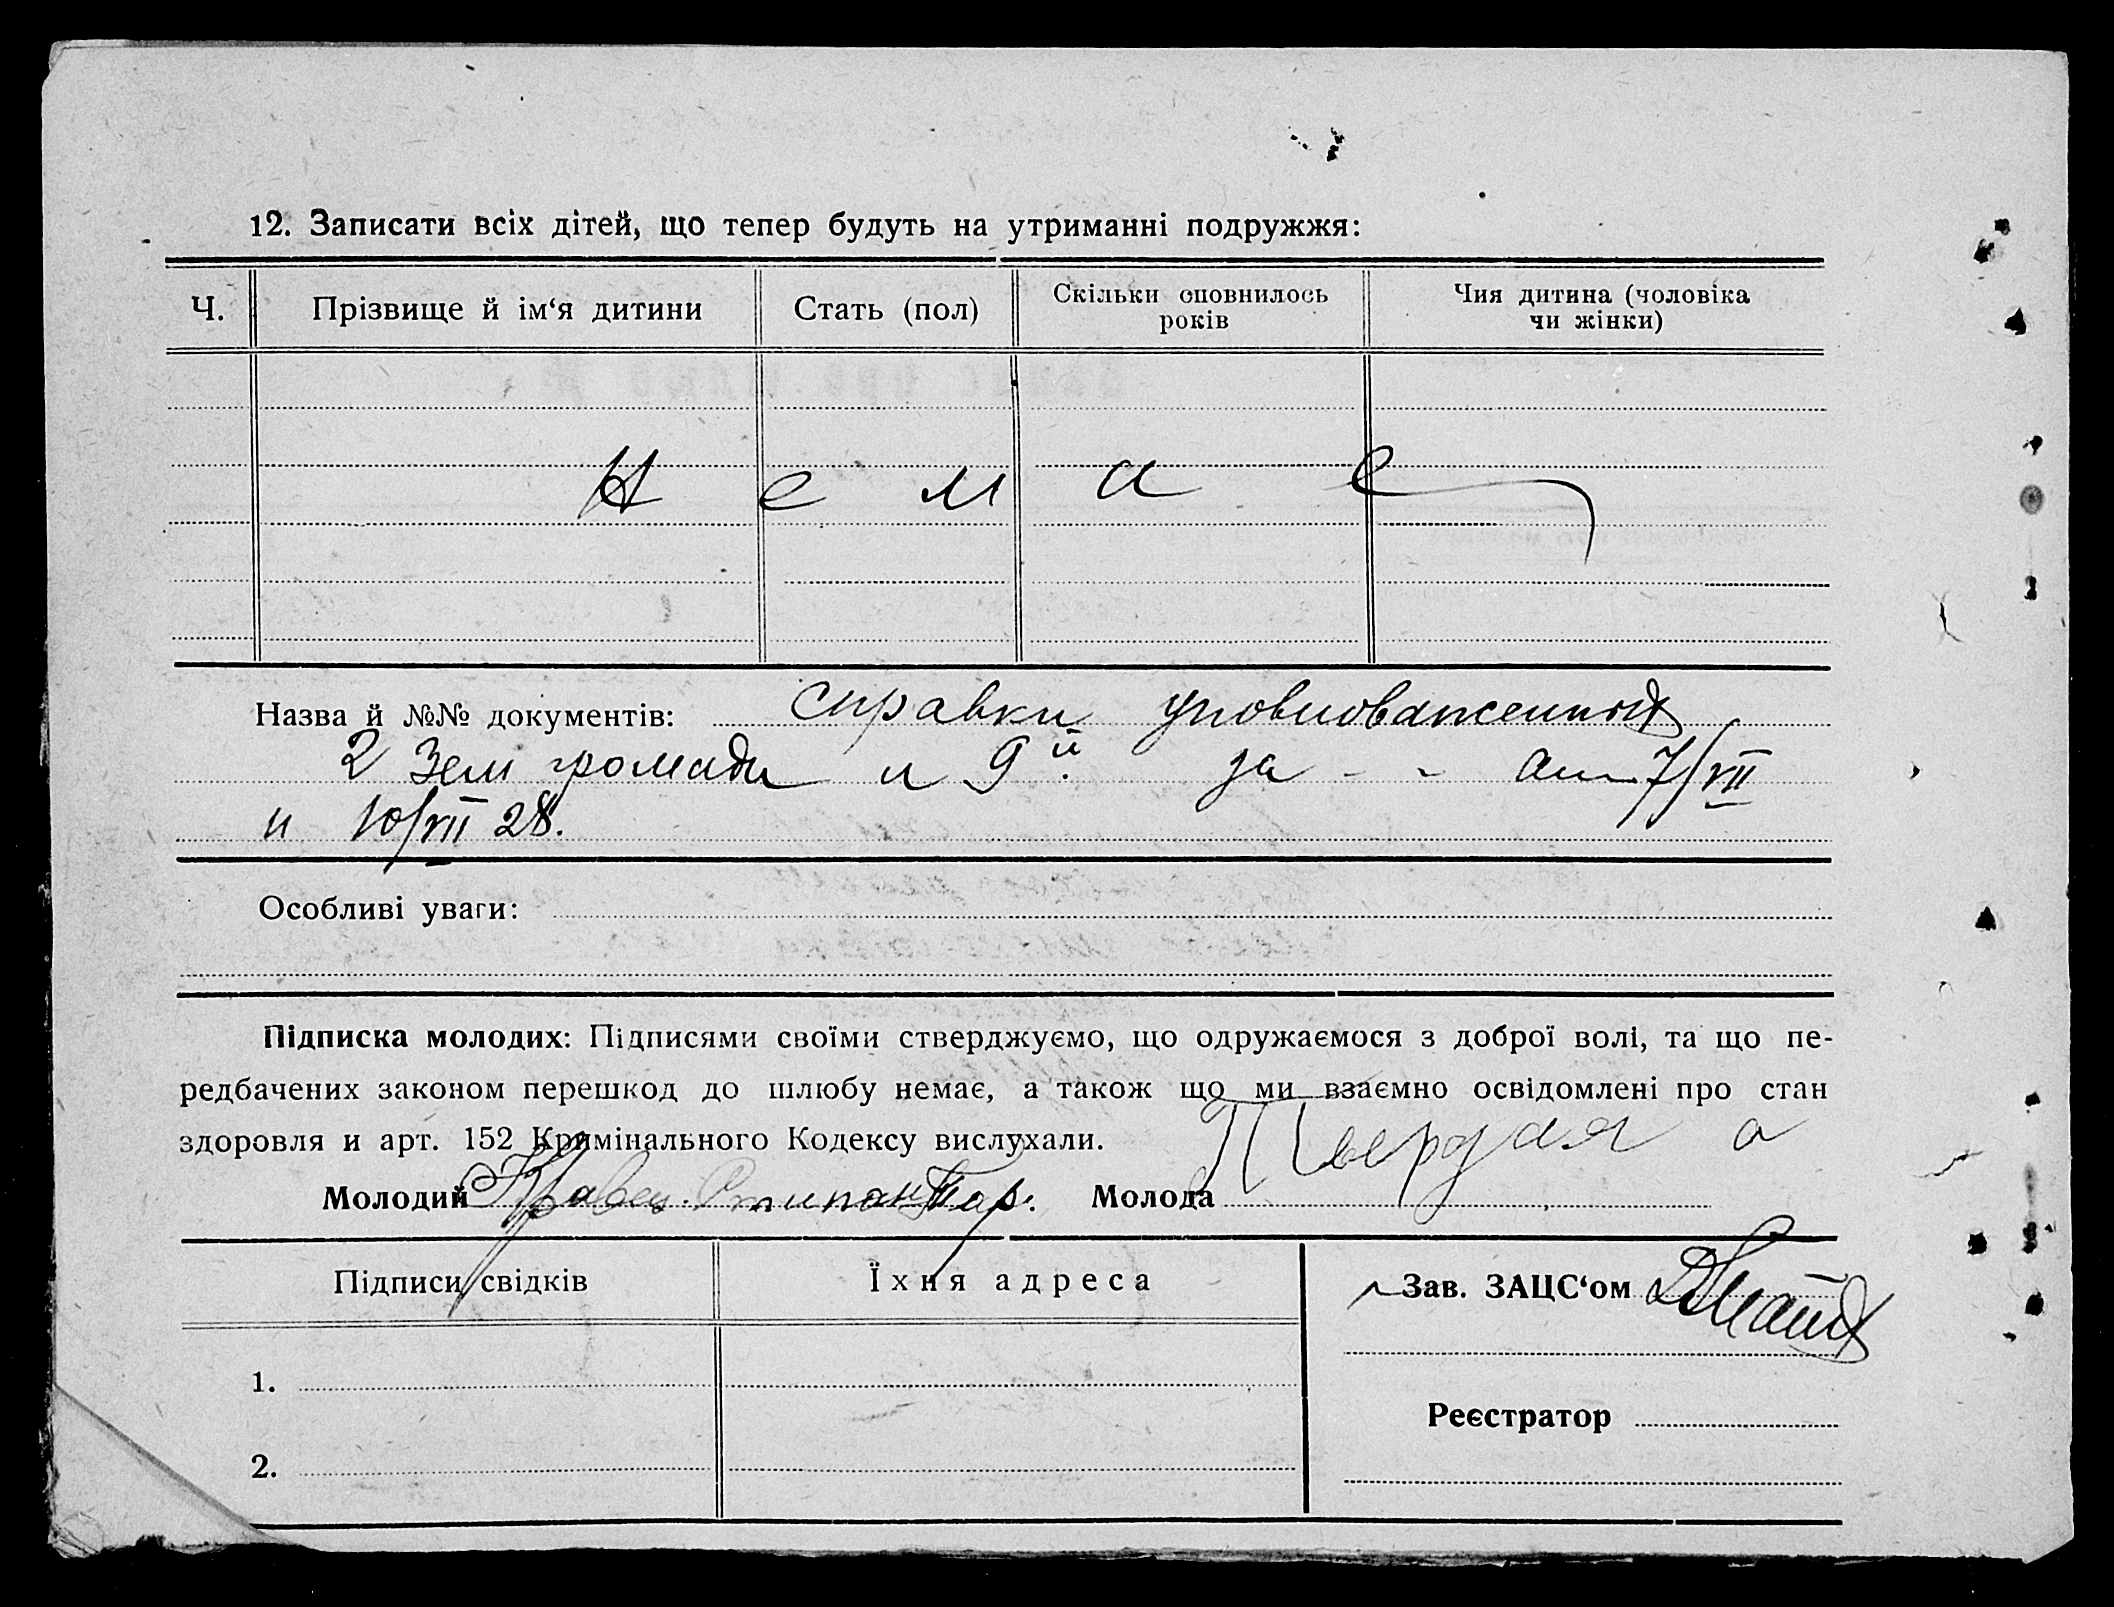 12. Записати всіх дітей, що тепер будуть на утриманні подружжя:
Ч. Прізвище й ім‘я дитини Стать (пол) Скільки сповнилось років Чия дитина (чоловіка чи жінки)
Немає
Назва й №№ документів: справки уповноваженных
2 Зем громади и 9й за - - от 7/VII
и 10/VII 28.
Особливі уваги:
Підписка молодих: Підписями своїми стверджуємо, що одружаємося з доброї волі, та що пе-
редбачених законом перешкод до шлюбу немає, а також що ми взаємно освідомлені про стан
здоровля и арт. 152 Кримінального Кодексу вислухали.
Молодий Кравец Степан Гар. Молода
Підписи свідків Їхня адреса Зав. ЗАЦС‘ом
1.
Реєстратор
2.